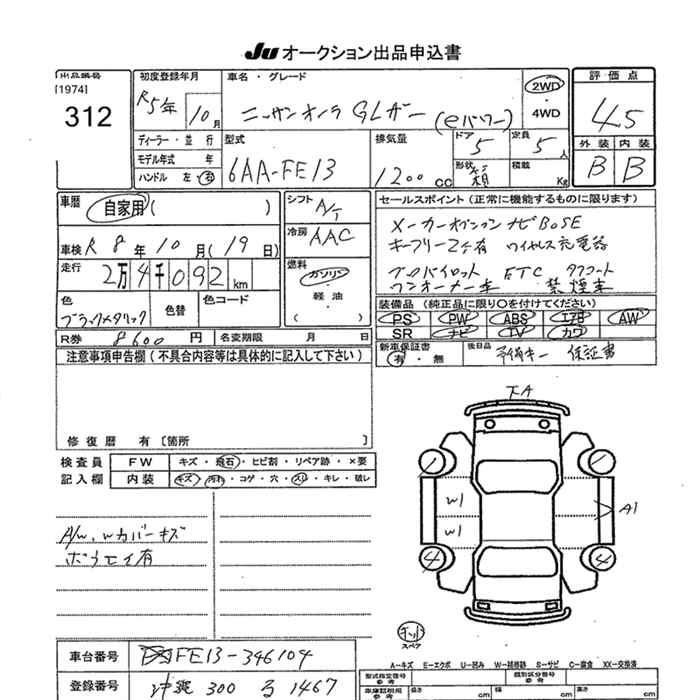 JU オークション出品申込書
出品番号 [1974] 312
初度登録年月 R5年 10月
車名・グレード ニッサンオーラ GLザー (eパワー)
2WD ・ 4WD
評価点 4.5
外装 内装
B B
ディーラー・並行
モデル年式 年
ハンドル 左・右
型式 6AA-FE13
排気量 1200 cc
ドア 5 定員 5人
形状 箱 積載 Kg
車暦 自家用( )
車検 R8年10月(19日)
走行 2万4千092km
色 ブラックメタリック 色替 色コード
シフト A/T
冷房 AAC
燃料 ガソリン ・ 軽油 ・ ( )
セールスポイント(正常に機能するものに限ります)
メーカーオプション ナビ BOSE
キーフリー2ケ有 ワイヤレス充電器
プロパイロット ETC
ワンオーナー車 禁煙車
装備品(純正品に限り○を付けてください)
PS PW ABS エアB AW
SR ナビ TV カワ
R券 8600円 名変期限 月 日
新車保証書 有・無 後日品 予備キー 保証書
注意事項申告欄(不具合内容等は具体的に記入して下さい)
修復暦 有[箇所 ]
検査員記入欄
FW キズ・飛石・ヒビ割・リペア跡・×要
内装 キズ・汚れ・コゲ・穴・スレ・キレ・破レ
A/W、Wカバーキズ
ボウセイ有
下A
W1
W1
A1
4 4
スペア
A-キズ E-エクボ U-凹み W-補修跡 S-サビ C-腐食 XX-交換済
車台番号 FE13-346104
登録番号 300 る 1467
型式指定番号 類別区分番号
車庫証明用 参考 長さ cm 幅 cm 高さ cm